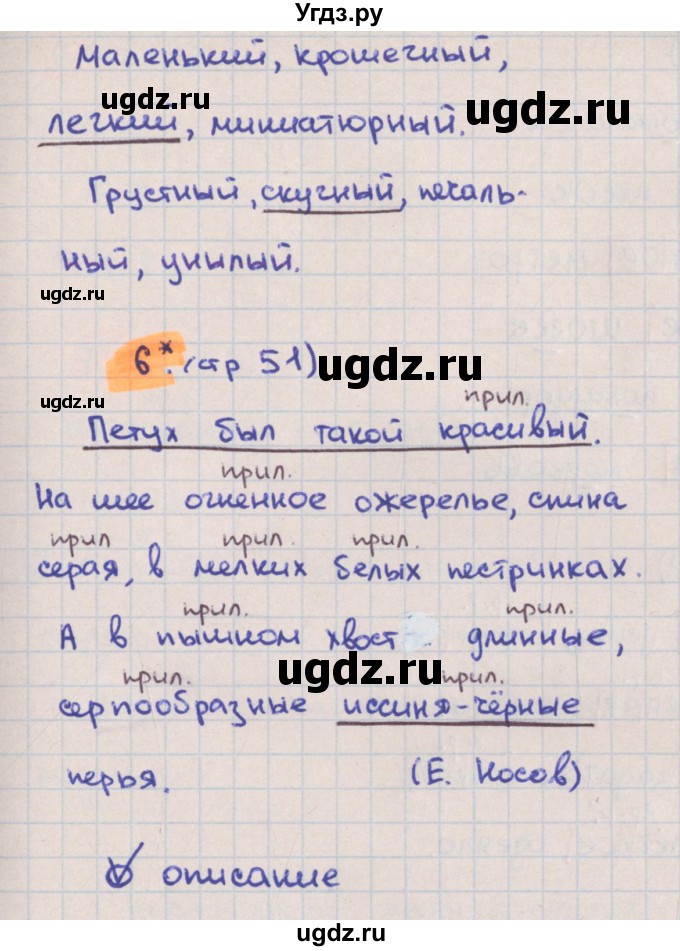 Угдз.ру
Маленький, крошечный,
лёгкий, миниатюрный.
Грустный, скучный, печаль-
ный, унылый.
6*. (стр 51)
прил.
Петух был такой красивый.
прил.
На шее огненное ожерелье, спина
прил прил. прил.
серая, в мелких белых пестринках.
прил. прил.
А в пышном хвост длинные,
прил. прил.
серпообразные иссиня-чёрные
перья. (Е. Носов)
описание
ugdz.ru
ugdz.ru
ugdz.ru
ugdz.ru
ugdz.ru
ugdz.ru
ugdz.ru
ugdz.ru
ugdz.ru
ugdz.ru
ugdz.ru